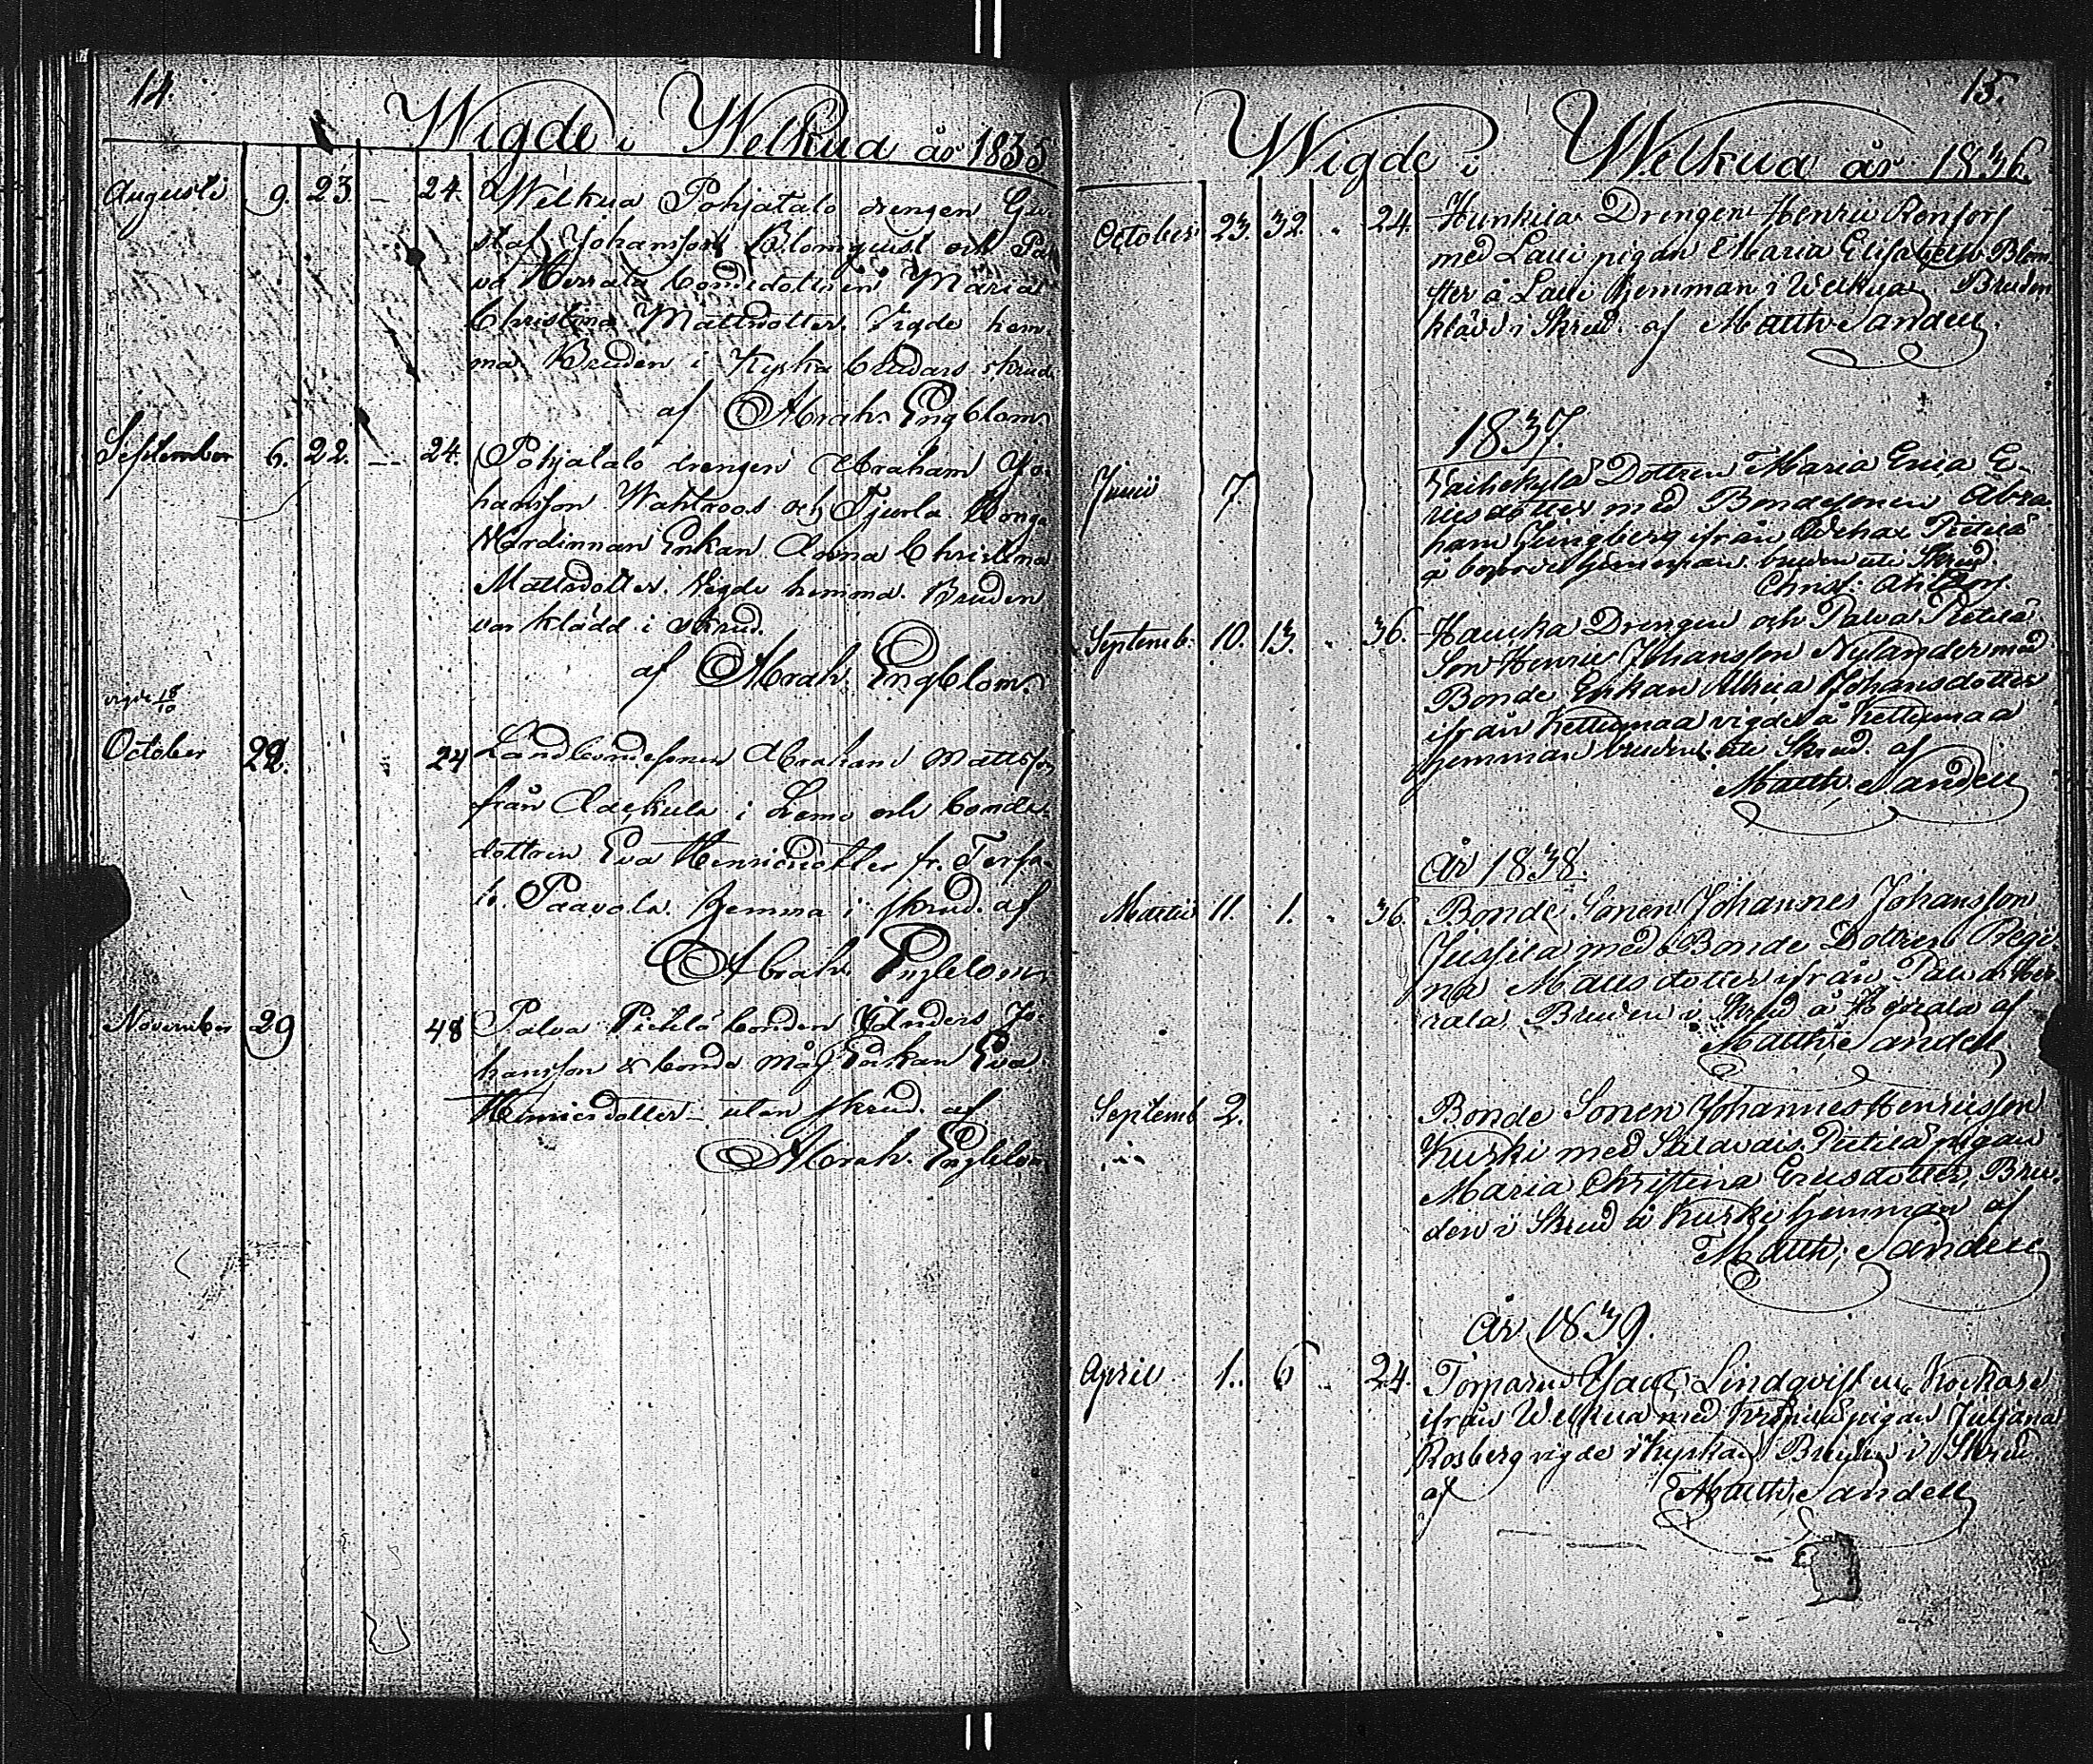 14.
Wigde i Welkua år 1835
Augusti 9. 23. — 24. Welkua Pohjatalo drengen Gu-
staf Johansson Blomquist och Pal
va Herrala bondedottren Maria
Christina Mattsdotter. Vigde hem-
ma Bruden i Kyska brudars skrud.
af Abrah. Engblom.
September 6. 22. — 24. Pohjatalo drengen Abraham Jo-
hansson Wahlroos och Tjurla
Wärdinnan Enkan Anna Christina
Mattsdotter. Vigde hemma. Bruden
var klädd i skrud.
af Abrah. Engblom.
vigde 18/10
October 22. 24 Landbondesonen Abraham Mattsson
från i Lemo och bonde-
dottren Eva Henricsdotter fr. Teersa-
lo. Paavola. hemma i skrud. af
Abrah. Engblom.
November 29 48 Palva Pietilä bonden Anders Jo-
hansson & bonde måg Enkan Eva
Henricsdotter utan skrud. af
Abrah. Engblom
15.
Wigde i Welkua år 1836.
October 23. 32. " 24. Hunkua Drengen Henric Renfors
med Lauri pigan Maria Elisabeth Blom
ster å Lauri hemman i Welkua. Bruden
klädd i Skrud. af Matth. Sandell.
1837.
Junii 7 Dottren Maria Erica E-
ricsdotter med Bondesonen Abra-
ham Ljungberg ifrån Pietilä
å hemman. bruden uti Skrud.
Christ:
Septemb. 10. 13. " 36. Haucka Drengen och Palva Pietilä
Son Henric Johansson Nylander med
Bonde Enkan Ulrica Johansdotter
ifrån Kettumaa vigde å Kettumaa
hemman bruden uti Skrud. af
Matth. Sandell
År 1838.
Martii 11. 1. " 36. Bonde Sonen Johannes Johansson
Jussila med Bonde Dottren Regi-
na Matsdotter ifrån Palva Her-
rala, Bruden i Skrud å Herrala af
Matth. Sandell
Septemb. 2. Bonde Sonen Johannes Henricsson
Kurki med Salavais Pietilä pigan
Maria Christina Ericsdotter, Bru-
den i Skrud å Kurki hemman af
Matth. Sandell
År 1839.
April 1. 6 " 24. Torparen Isaac Lindqvist
ifrån Welkua med pigan Juliana
Rosberg vigde i Kyrkan Bruden i Skrud.
af Matth. Sandell